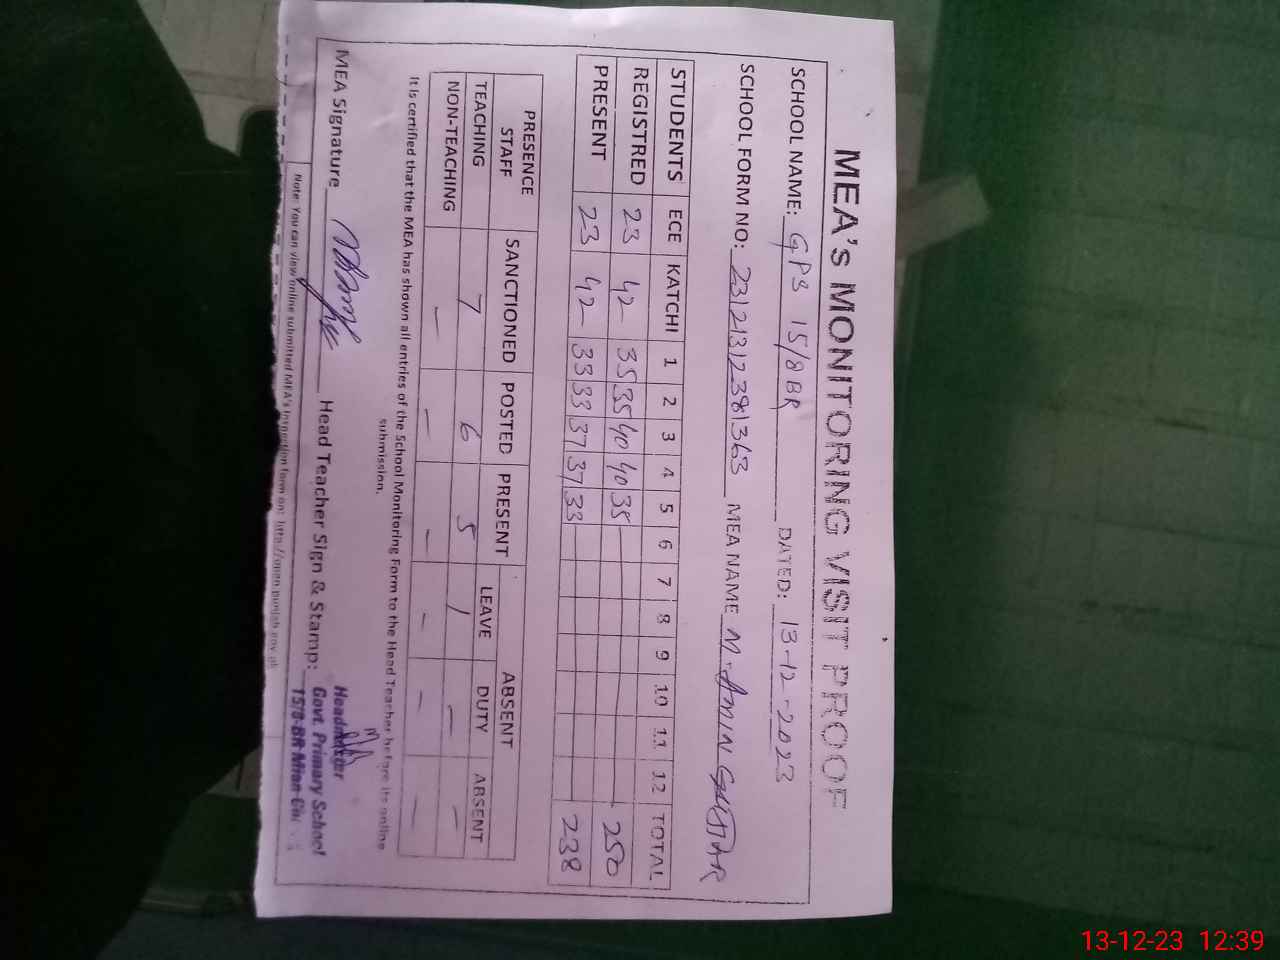 MEA's MONITORING VISIT PROOF
SCHOOL NAME: GPS 15/8BR DATED: 13-12-2023
SCHOOL FORM NO: 23121312381363 MEA NAME M. AMIN
STUDENTS ECE KATCHI 1 2 3 4 5 6 7 8 9 10 11 12 TOTAL
REGISTRED 23 42 35 35 40 40 35 250
PRESENT 23 42 33 33 37 37 33 238
PRESENCE STAFF SANCTIONED POSTED PRESENT ABSENT
LEAVE DUTY ABSENT
TEACHING 7 6 5 1 - -
NON-TEACHING - - - - - -
It is certified that the MEA has shown all entries of the School Monitoring Form to the Head Teacher before its online
submission.
MEA Signature Head Teacher Sign & Stamp:
Headmaster
Govt. Primary School
15/8-BR Mian
Note: You can view online submitted MEA's Inspection form on: http://open.punjab.gov.pk
13-12-23 12:39